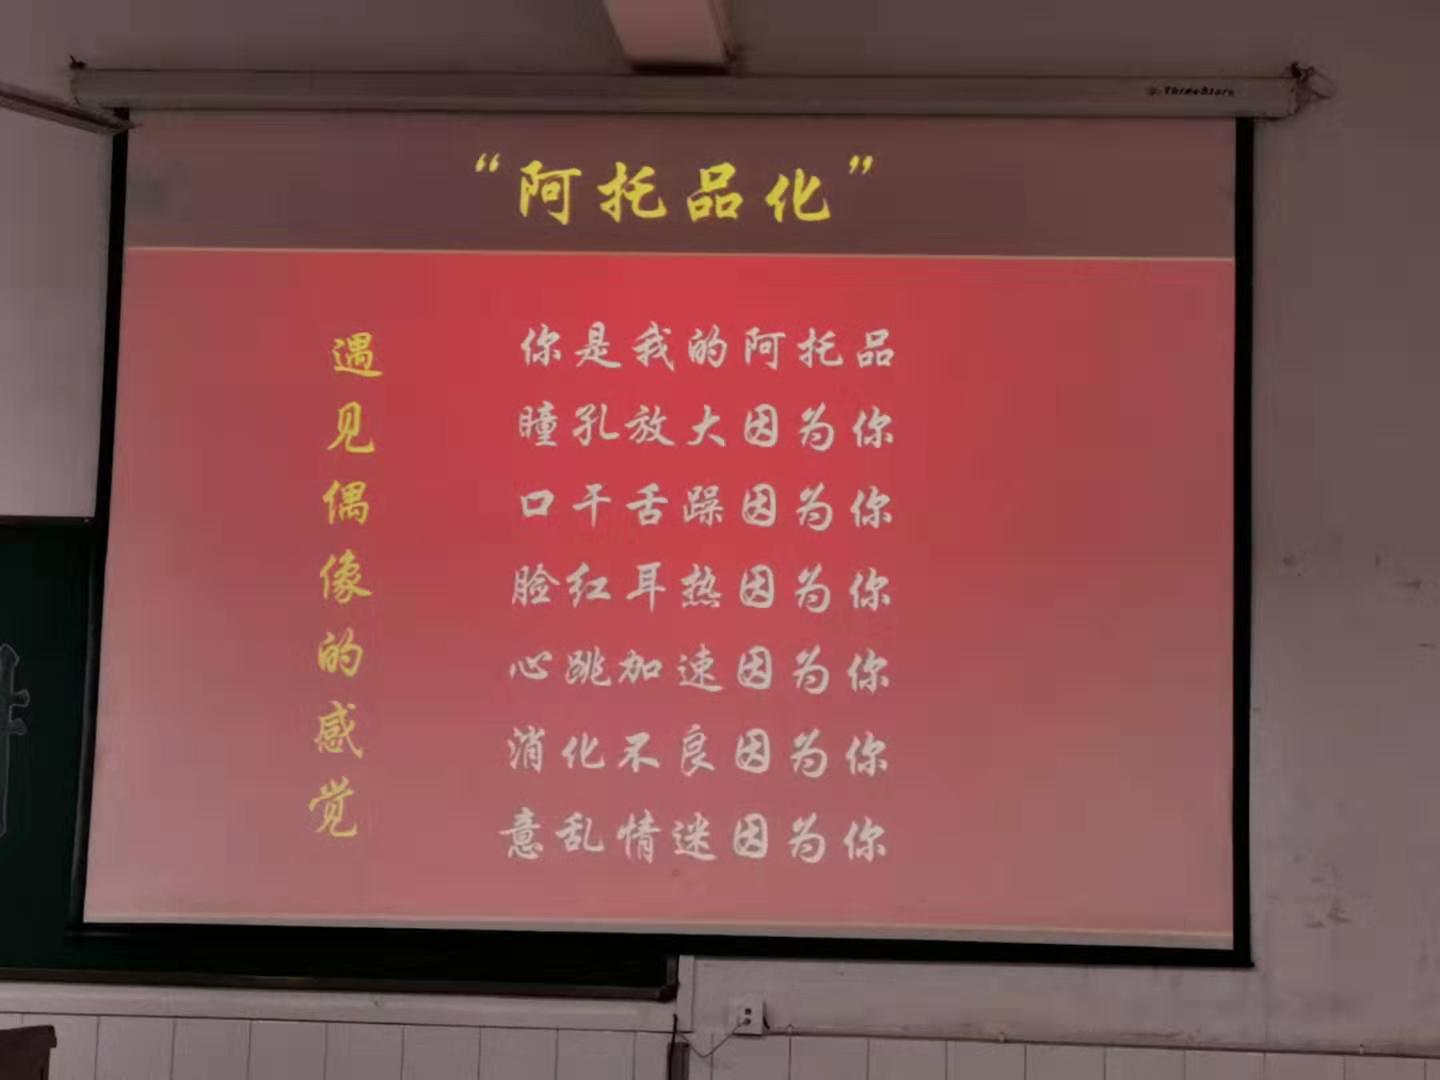 “阿托品化”
遇见偶像的感觉
你是我的阿托品
瞳孔放大因为你
口干舌躁因为你
脸红耳热因为你
心跳加速因为你
消化不良因为你
意乱情迷因为你